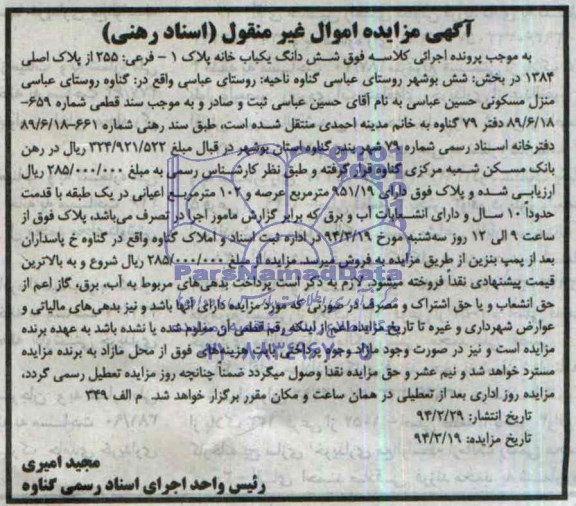 آگهی مزایده اموال غیر منقول (اسناد رهنی)
به موجب پرونده اجرائی کلاسه فوق شش دانگ یکباب خانه پلاک ۱ - فرعی: ۲۵۵ از پلاک اصلی
۱۳۸۴ در بخش: شش بوشهر روستای عباسی گناوه ناحیه: روستای عباسی واقع در: گناوه روستای عباسی
منزل مسکونی حسین عباسی به نام آقای حسین عباسی ثبت و صادر و به موجب سند قطعی شماره ۶۵۹-
۸۹/۶/۱۸ دفتر ۷۹ گناوه به خانم مدینه احمدی منتقل شده است، طبق سند رهنی شماره ۶۶۱-۸۹/۶/۱۸
دفترخانه اسناد رسمی شماره ۷۹ شهر بندر گناوه استان بوشهر در قبال مبلغ ۳۲۴/۹۲۱/۵۲۲ ریال در رهن
بانک مسکن شعبه مرکزی گناوه قرار گرفته و طبق نظر کارشناس رسمی به مبلغ ۲۸۵/۰۰۰/۰۰۰ ریال
ارزیابی شده و پلاک فوق دارای ۹۵۱/۱۹ مترمربع عرصه و ۱۰۲ مترمربع اعیانی در یک طبقه با قدمت
حدوداً ۱۰ سال و دارای انشعابات آب و برق که برابر گزارش مامور اجرا در تصرف می‌باشد، پلاک فوق از
ساعت ۹ الی ۱۲ روز سه‌شنبه مورخ ۹۴/۳/۱۹ در اداره ثبت اسناد و املاک گناوه واقع در گناوه خ پاسداران
بعد از پمپ بنزین از طریق مزایده به فروش میرسد. مزایده از مبلغ ۲۸۵/۰۰۰/۰۰۰ ریال شروع و به بالاترین
قیمت پیشنهادی نقداً فروخته میشود. لازم به ذکر است پرداخت بدهی‌های مربوط به آب، برق، گاز اعم از
حق انشعاب و یا حق اشتراک و مصرف در صورتی که مورد مزایده دارای آنها باشد و نیز بدهی‌های مالیاتی و
عوارض شهرداری و غیره تا تاریخ مزایده اعم از اینکه رقم قطعی آن معلوم شده یا نشده باشد به عهده برنده
مزایده است و نیز در صورت وجود مازاد وجوه پرداختی بابت هزینه‌های فوق از محل مازاد به برنده مزایده
مسترد خواهد شد و نیم عشر و حق مزایده نقداً وصول میگردد ضمناً چنانچه روز مزایده تعطیل رسمی گردد،
مزایده روز اداری بعد از تعطیلی در همان ساعت و مکان مقرر برگزار خواهد شد. م الف ۳۴۹
تاریخ انتشار: ۹۴/۲/۲۹
تاریخ مزایده: ۹۴/۳/۱۹
مجید امیری
رئیس واحد اجرای اسناد رسمی گناوه
ParsNamadData